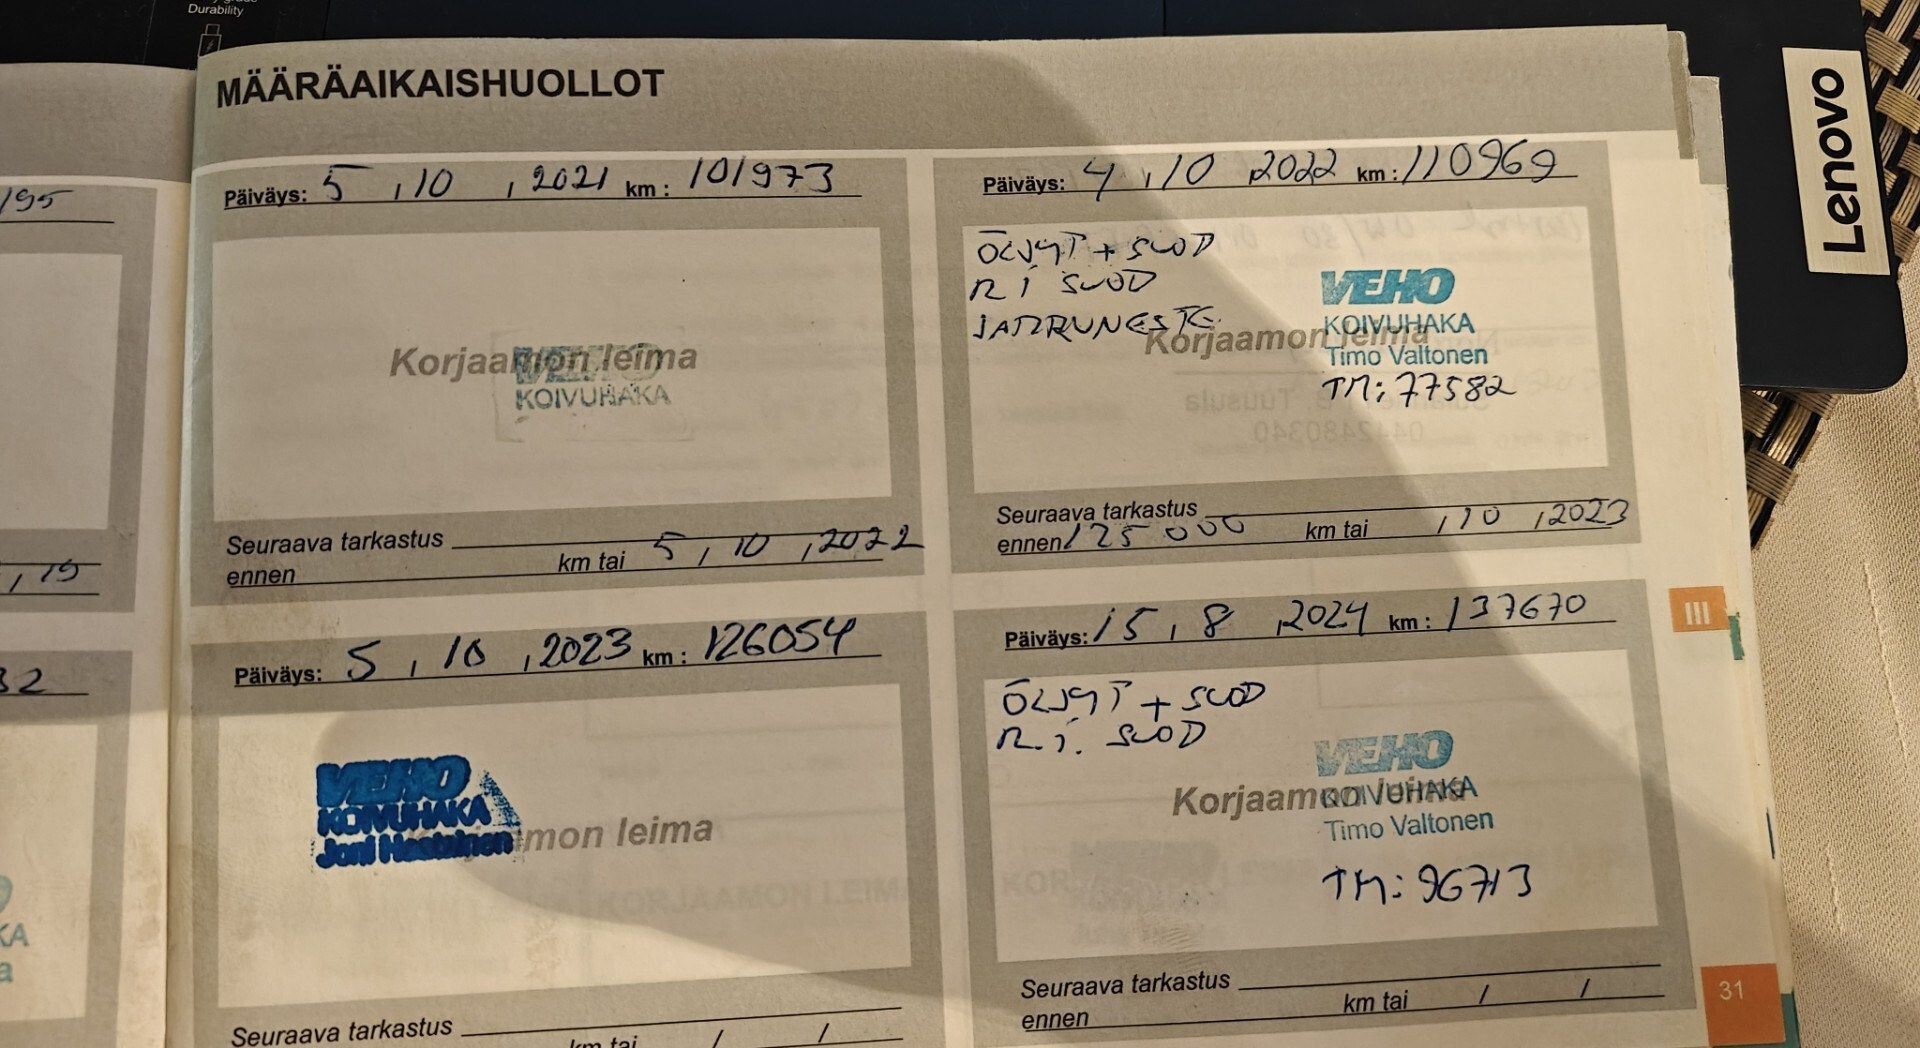 Durability
Lenovo
MÄÄRÄAIKAISHUOLLOT
195
, 15
32
KA
a
Päiväys: 5 , 10 , 2021 km : 101973
Korjaamon leima
VEHO
KOIVUHAKA
Seuraava tarkastus
ennen km tai 5 , 10 , 2022
Päiväys: 4 , 10 2022 km : 110969
ÖLJYT + SUOD
R i SUOD
JARRUNESTE
Korjaamon leima
VEHO
KOIVUHAKA
Timo Valtonen
TM: 77582
Tuusula
0442480340
Seuraava tarkastus
ennen 125 000 km tai , 10 , 2023
Päiväys: 5 , 10 , 2023 km : 126054
VEHO
KOIVUHAKA
Joni
mon leima
KORJAAMON LEIMA
Seuraava tarkastus
km tai / /
Päiväys: 15 , 8 , 2024 km : 137670
ÖLJYT + SUOD
R.i. SUOD
Korjaamon leima
VEHO
KOIVUHAKA
Timo Valtonen
TM: 96713
Seuraava tarkastus
ennen km tai / /
III
31